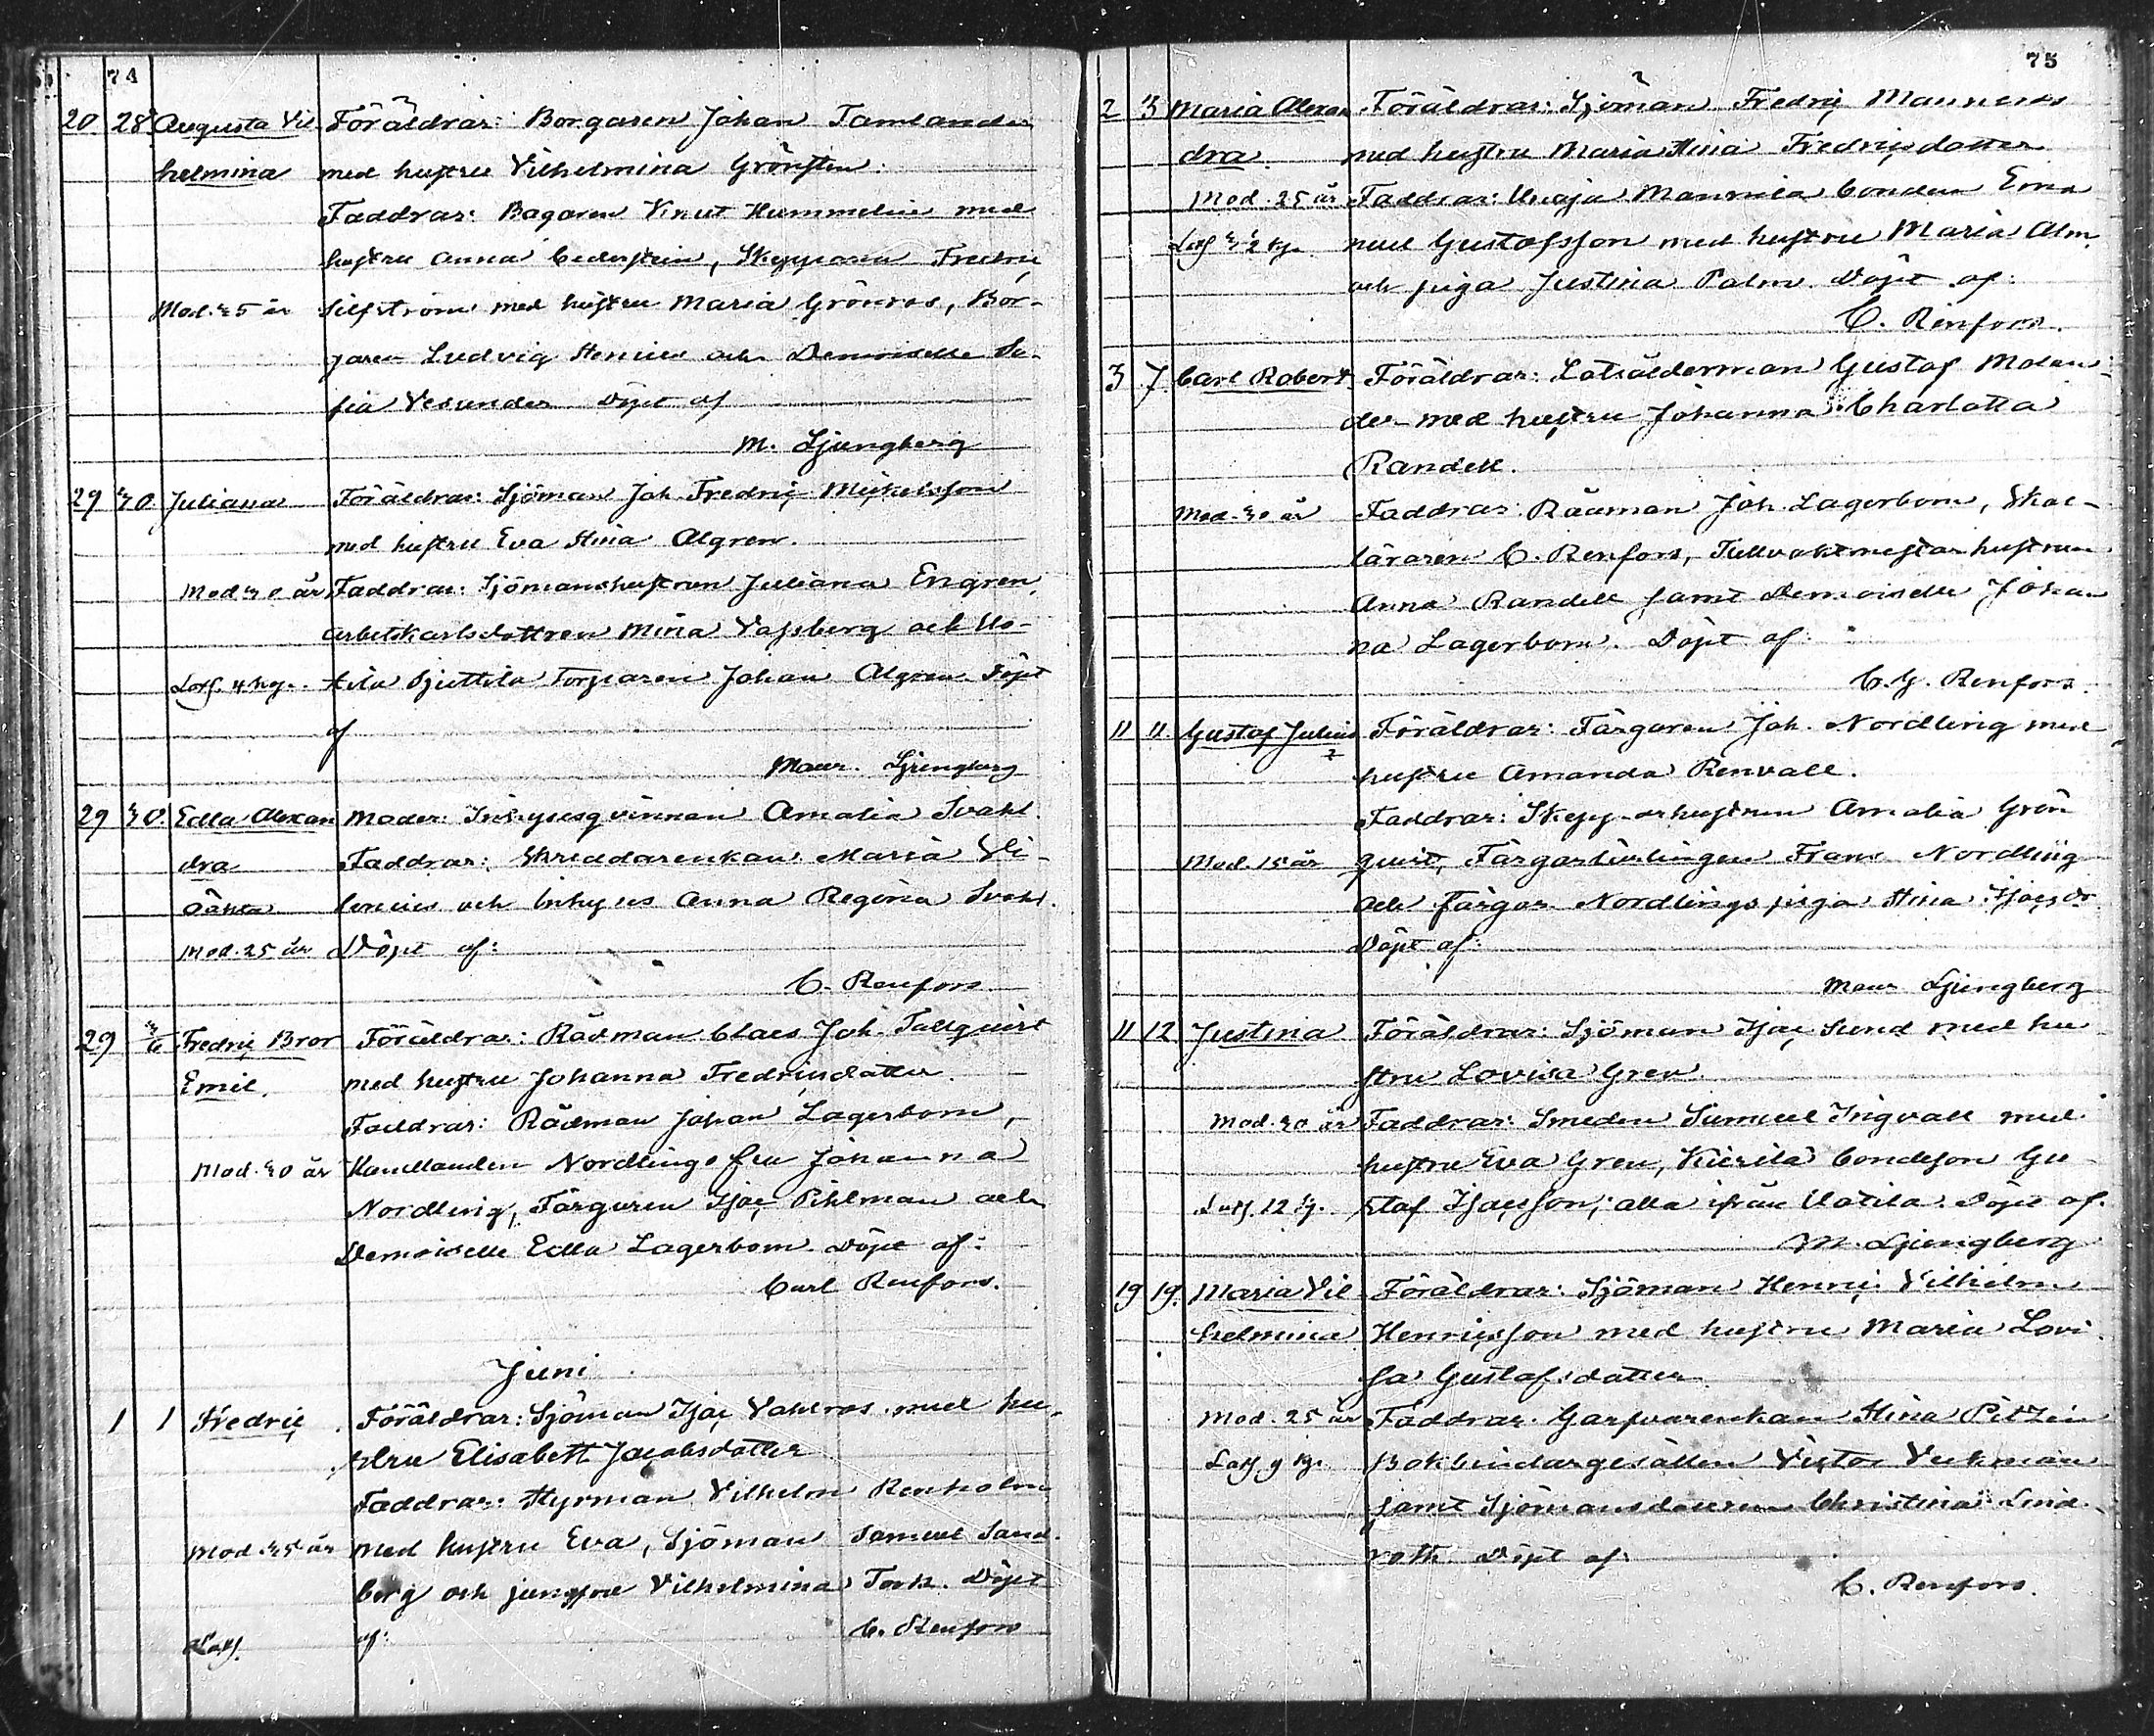 74
20 28 Augusta Vil Föräldrar: Borgaren Johan Tamlander
helmina med hustru Vilhelmina Grönsten.
Faddrar: Bagaren Knut Hummelin med
hustru Anna Cederstein, Skepparen Fredric
Mod. 35 år Silfström med hustru Maria Grönros, Bor-
garen Ludvig Henius och Demoiselle So-
fia Vesander Döpt af
M. Ljungberg
29 30. Juliana Föräldrar: Sjöman Joh. Fredric Mickelsson
med hustru Eva Stina Algren.
Mod 30 år Faddrar: Sjömanshustrun Juliana Engren,
arbetskarlsdottren Mina Vassberg och Uo-
Lösf. 4 kp. tila Pjuttila Torparen Johan Algren Döpt
af
Maur. Ljungberg
29 30 Edla Alexan Moder: Inhysesqvinnan Amalia Svahl.
dra Faddrar: Skreddarenkan Maria Sle-
Oäkta och inhyses Anna Regina Svahl.
Mod. 25 år Döpt af:
C. Renfors
29 3/6 Fredric Bror Föräldrar: Rådman Claes Joh. Tallquist
Emil. med hustru Johanna Fredricsdotter.
Faddrar: Rådman Johan Lagerbom,
Mod. 30 år Handlanden Nordlings fru Johanna
Nordling, Färgaren Isac Pihlman och
Demoiselle Edla Lagerbom. Döpt af:
Carl Renfors.
Juni
1 1 Fredric Föräldrar: Sjöman Isac Vahlros med hu-
stru Elisabett Jacobsdotter
Faddrar: Styrman Vilhelm Renholm
Mod. 35 år med hustru Eva, Sjöman Samuel Sand-
berg och jungfru Vilhelmina Tork. Döpt
Lösf. af: C. Renfors
75
2 3 Maria Alexan Föräldrar: Sjöman Fredric Manneros
dra. med hustru Maria Stina Fredricsdotter
Mod. 25 år Faddrar: Unaja Mannila bonden Ema
Lösf 3 1/2 kp. nuel Gustafsson med hustru Maria Alm
och piga Justina Palm. Döpt af:
C. Renfors.
3 7 Carl Robert Föräldrar: Lotsålderman Gustaf Molan-
der med hustru Johanna Charlotta
Randell.
Mod. 30 år Faddrar: Rådman Joh. Lagerbom, Skol-
läraren C. Renfors, Tullvaktmestarhustrun
Anna Randell samt Demoiselle Johan
na Lagerbom. Döpt af:
C. G. Renfors.
11 11. Gustaf Julius Föräldrar: Färgaren Joh. Nordling med
hustru Amanda Renvall.
Faddrar: Skepparhustrun Amalia Grön
Mod. 15 år quist, Färgarlärlingen Frans Nordling
och färgar Nordlings piga Stina Isacsdr
Döpt af:
Maur Ljungberg
11 12. Justina Föräldrar: Sjöman Isac Sund med hu
stru Lovisa Gren.
Mod. 30 år Faddrar: Smeden Samuel Ingvall med
hustru Eva Gren, Kierila bondeson Gu
Lösf. 12 kp. staf Isacsson; alla ifrån Uotila. Döpt af.
M. Ljungberg
19 19. Maria Vil Föräldrar: Sjöman Henric Vilhelm
helmina Henricsson med hustru Maria Lovi
sa Gustafsdotter.
Mod. 25 år Faddrar. Garfvarenkan Stina Petzin
Lösf 9 kp. Bokbindargesällen Victor Vickman
samt Sjömansdottren Christina Lind-
roth. Döpt af:
C. Renfors.